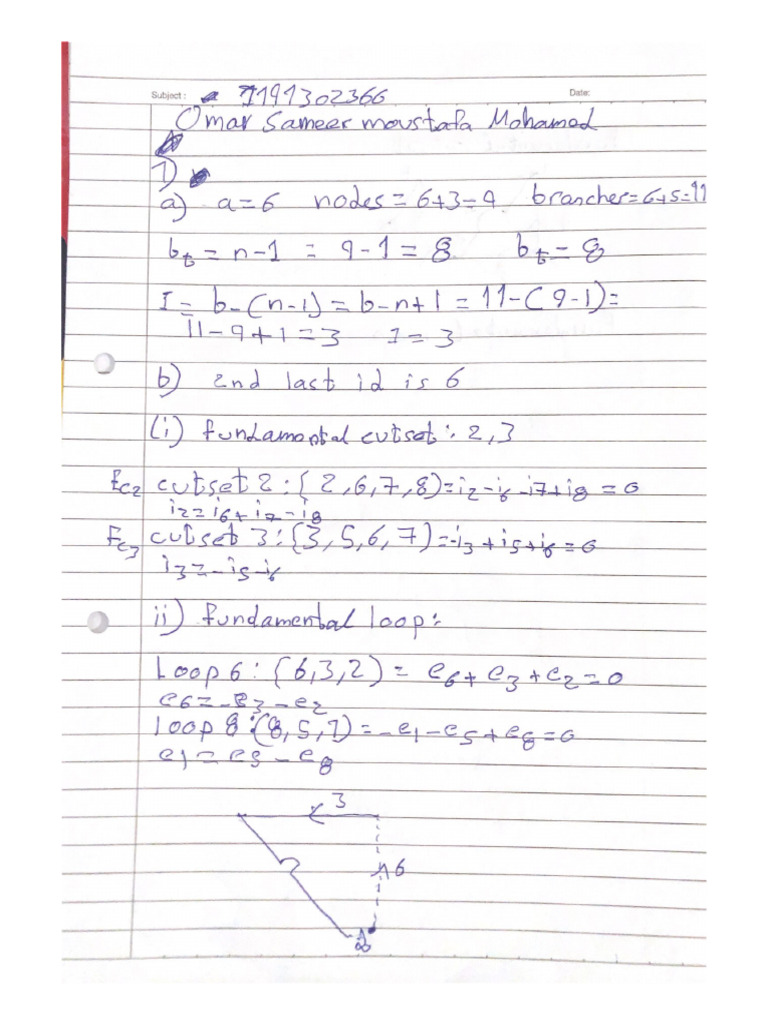 Subject: 1191302366 Date:
Omar Sameer moustafa Mohamed
1)
a) a=6 nodes= 6+3=9 branches=6+5=11
bt = n-1 = 9-1 = 8 bt = 8
I = b-(n-1) = b-n+1 = 11-(9-1)=
11-9+1=3 I=3
b) 2nd last id is 6
(i) fundamental cutset: 2,3
Fc2 cutset 2: {2,6,7,8}=i2-i6-i7+i8=0
i2=i6+i7-i8
Fc3 cutset 3: {3,5,6,7}=-i3+i5+i6=0
i3=-i5-i6
ii) fundamental loop:
Loop 6: {6,3,2} = e6+e3+e2=0
e6=-e3-e2
loop 8: {8,5,1} = -e1-e5+e8=0
e1=e5-e8
3
6